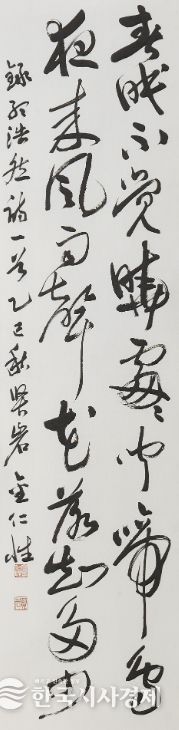 春眠不覺曉處處聞啼鳥
夜來風雨聲花落知多少
錄孟浩然詩一首 乙巳秋 賢岩 金仁性
한국시사경제